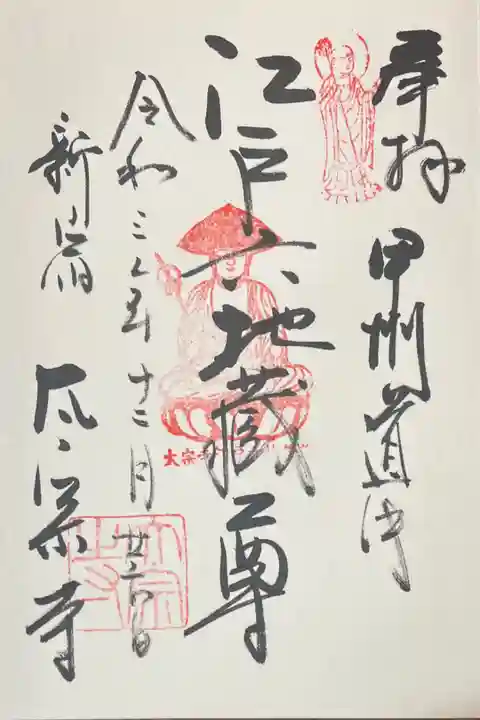 奉拝
甲州道中
江戸六地蔵尊
令和三年十二月廿日
新宿
太宗寺
太宗寺